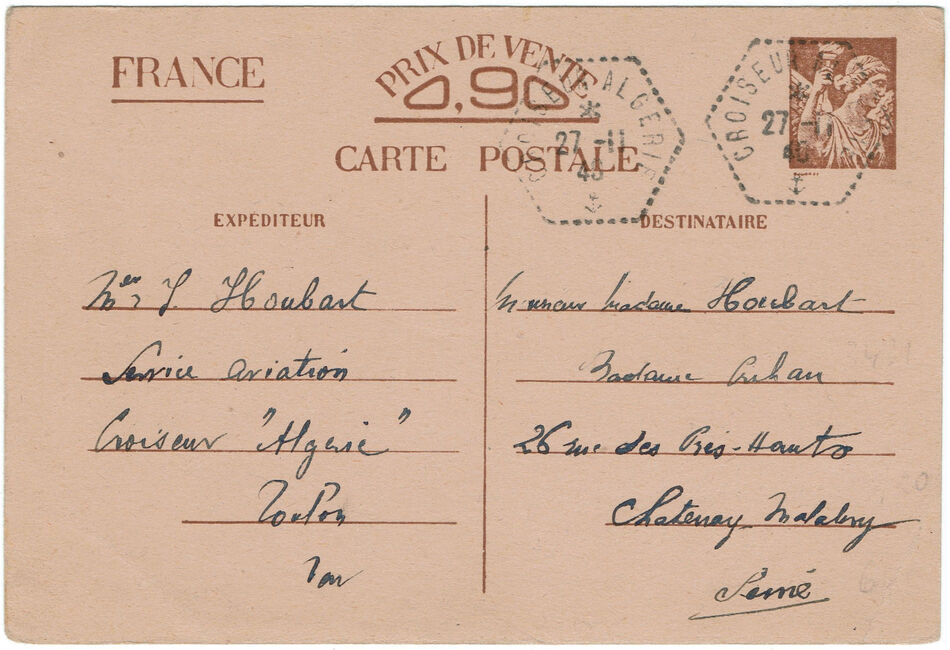 FRANCE
PRIX DE VENTE
0,90
CARTE POSTALE
CROISEUR ALGERIE
27 -11
40
CROISEUR
27 -11
40
EXPÉDITEUR
Mer J. Houbart
Service aviation
Croiseur "Algérie"
Toulon
Var
DESTINATAIRE
Monsieur Madame Houbart
Madame
26 rue des Près-Hauts
Chatenay Malabry
Seine